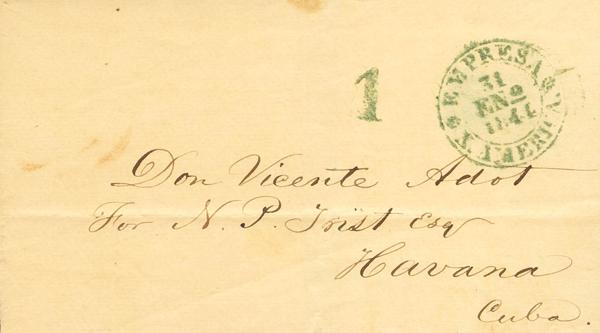 1
EMPRESAS
31
ENº
1841
Don Vicente Adot
For N. P. Trist Esq
Havana
Cuba.